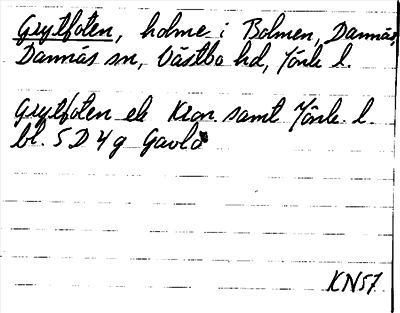 Grytfoten, holme i Bolmen, Dannäs,
Dannäs sn, Västbo hd, Jönk l.
Grytfoten ek Kron. samt Jönk. l.
bl. 5D 4g Gavlö
KN57